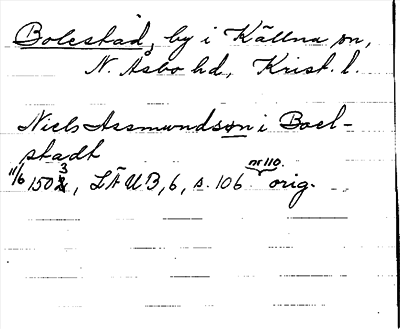 Bolestad, by i Källna sn,
N. Åsbo hd, Krist. l.
Niels Assmundsøn i Boel-
stadt
nr 110.
11/6 1503, LÄUB, 6, s. 106 orig.